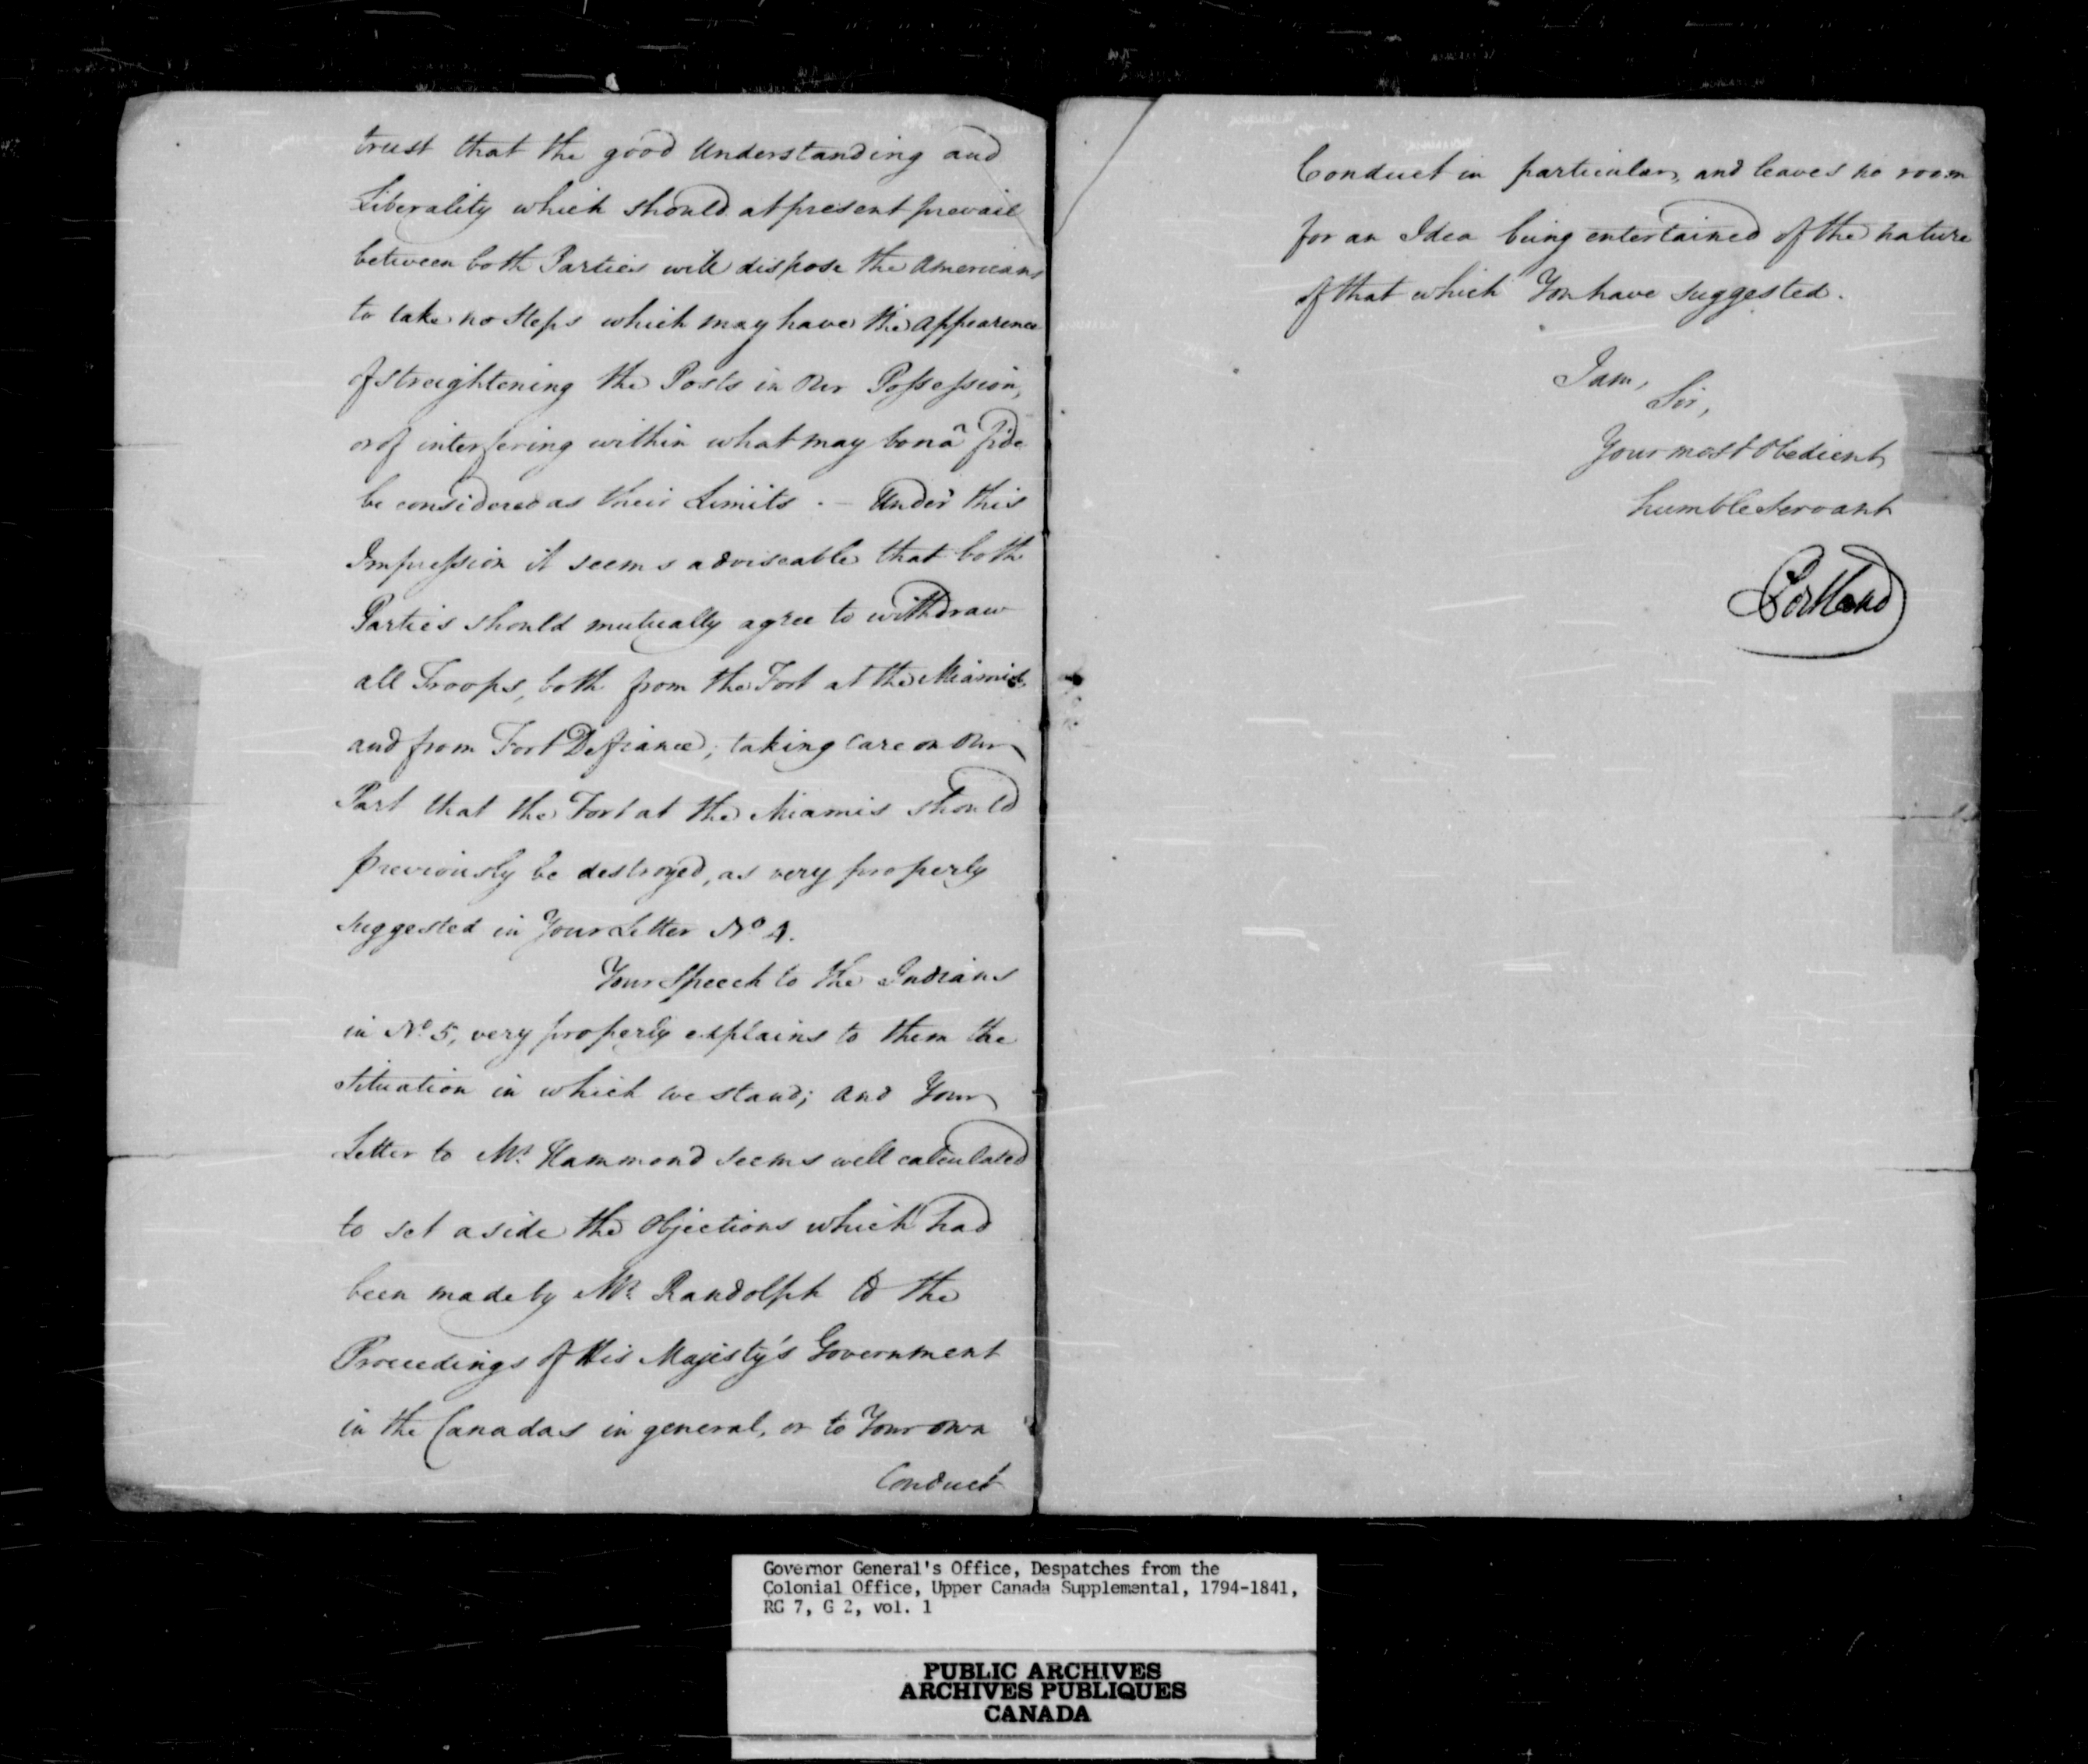 trust that the good Understanding and
Liberality which should at present prevail
between both Parties will dispose the Americans
to take no Steps which may have the Appearence
of streightening the Posts in Our Possession,
or of interfering within what may bonâ fide
be considered as their Limits. — Under this
Impression it seems adviseable that both
Parties should mutually agree to withdraw
all Troops, both from the Fort at the Miamis
and from Fort Defiance; taking care on Our
Part that the Fort at the Miamis should
previously be destroyed, as very properly
suggested in Your Letter No 4.
Your Speech to the Indians
in No 5, very properly explains to them the
Situation in which we stand; and Your
Letter to Mr Hammond seems well calculated
to set aside the Objections which had
been made by Mr Randolph to the
Proceedings of His Majesty's Government
in the Canadas in general, or to Your own
Conduct
Conduct in particular, and leaves no room
for an Idea being entertained of the nature
of that which You have suggested.
I am,
Sir,
Your most Obedient
humble Servant
Portland
Governor General's Office, Despatches from the
Colonial Office, Upper Canada Supplemental, 1794-1841,
RG 7, G 2, vol. 1
PUBLIC ARCHIVES
ARCHIVES PUBLIQUES
CANADA